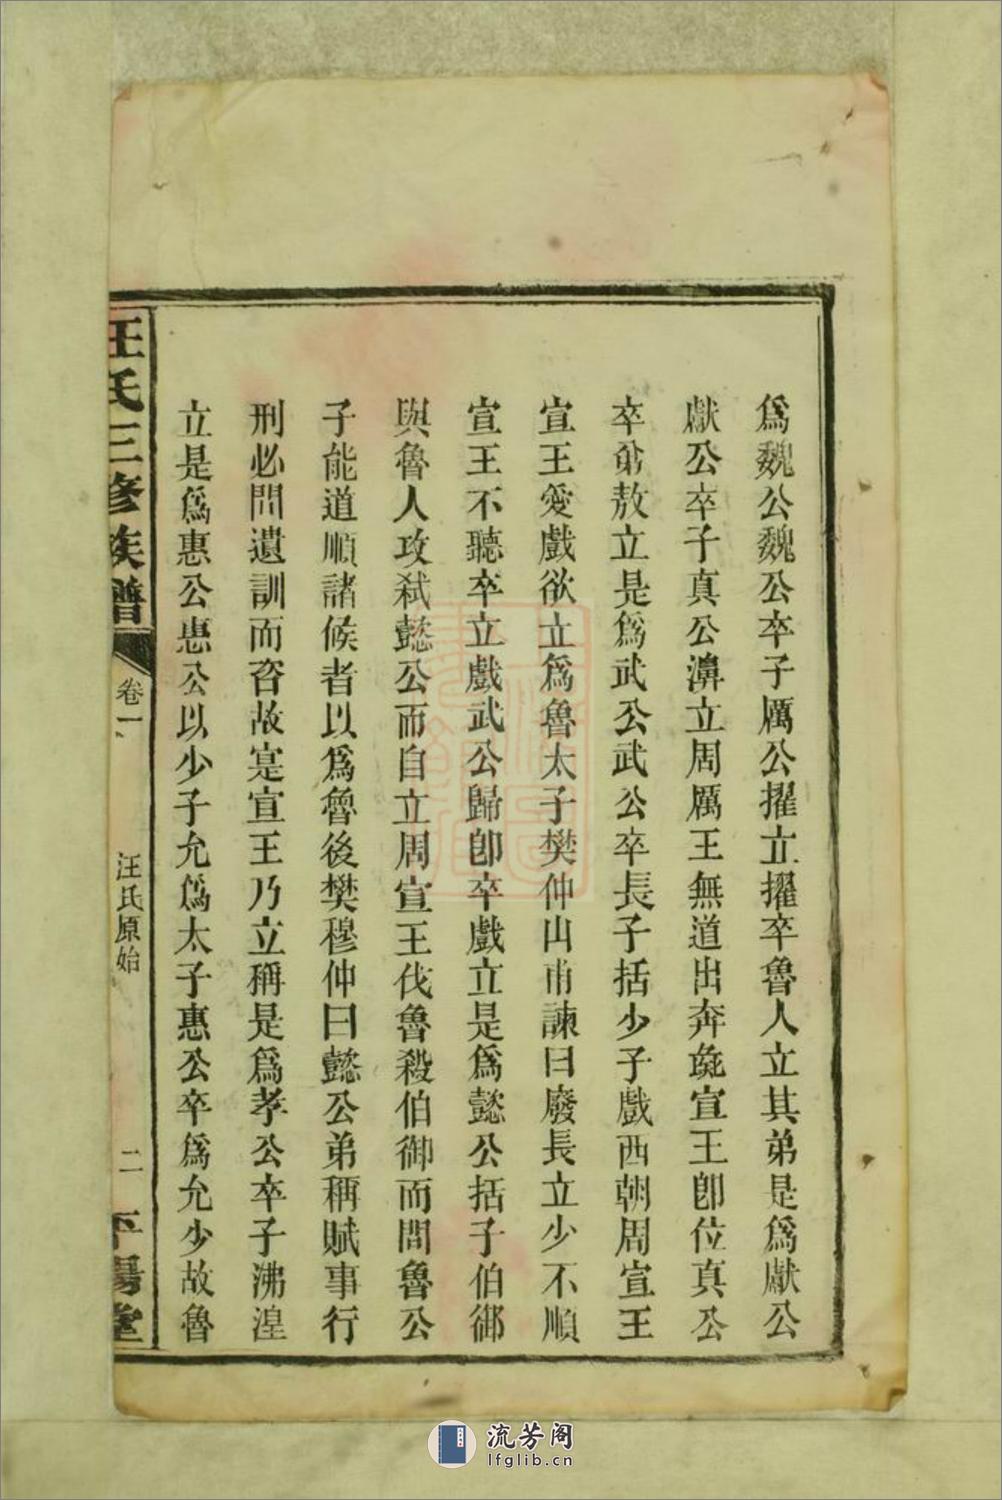 爲魏公魏公卒子厲公擢立擢卒魯人立其弟是爲獻公
獻公卒子真公濞立周厲王無道出奔彘宣王卽位真公
卒弟敖立是爲武公武公卒長子括少子戲西朝周宣王
宣王愛戲欲立爲魯太子樊仲山甫諫曰廢長立少不順
宣王不聽卒立戲武公歸卽卒戲立是爲懿公括子伯御
與魯人攻弒懿公而自立周宣王伐魯殺伯御而問魯公
子能道順諸候者以爲魯後樊穆仲曰懿公弟稱賦事行
刑必問遺訓而咨故寔宣王乃立稱是爲孝公卒子沸湟
立是爲惠公惠公以少子允爲太子惠公卒爲允少故魯
汪氏三修族譜
卷一
汪氏原始
二
平陽堂
流芳阁
lfglib.cn